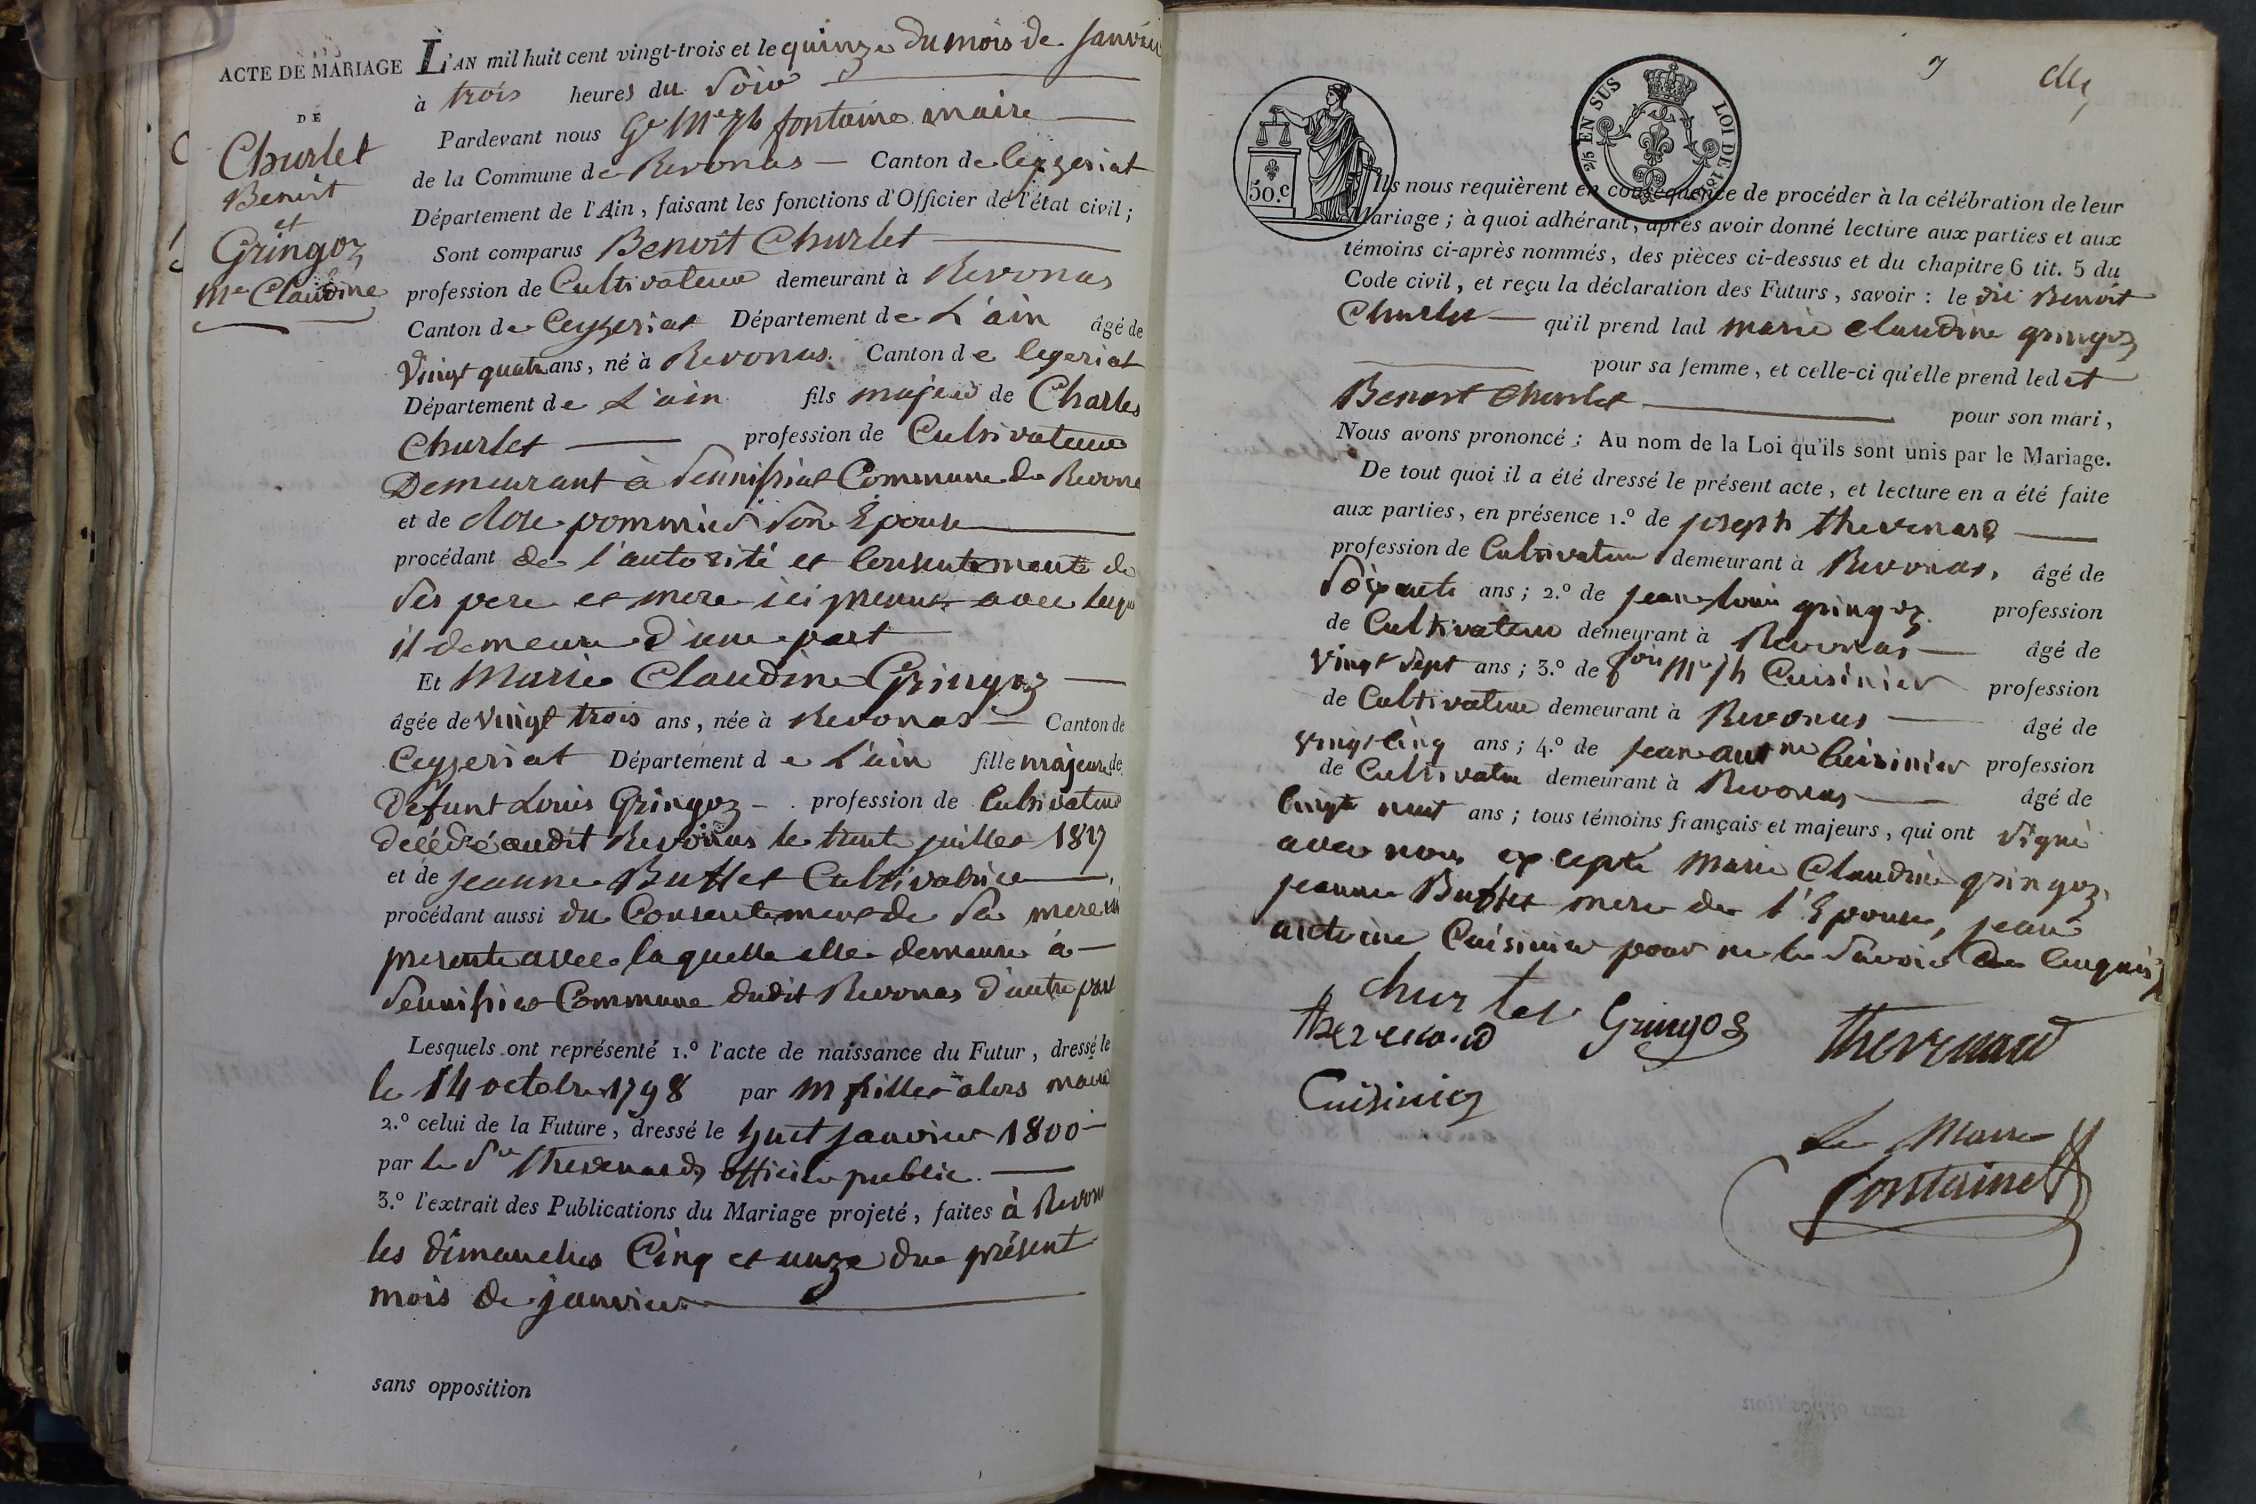 ACTE DE MARIAGE
DE
Churlet
Benoit
et
Gringoz
Me Claudine
L'AN mil huit cent vingt-trois et le quinze du mois de Janvier
à trois heures du Soir
Pardevant nous Ge Me Jh fontaine maire
de la Commune de Revonas Canton de Ceyzeriat
Département de l'Ain, faisant les fonctions d'Officier de l'état civil;
Sont comparus Benoit Churlet
profession de Cultivateur demeurant à Revonas
Canton de Ceyzeriat Département de L'ain âgé de
Vingt quatre ans, né à Revonas Canton de Ceyzeriat
Département de L'ain fils majeur de Charles
Churlet profession de Cultivateur
Demeurant à Sennissiat Commune de Revonas
et de pommier Son Epouse
procédant de l'autorité et Consentement de
Ses pere et mere ici présents avec lesquels
il demeure d'une part
Et Marie Claudine Gringoz
âgée de vingt trois ans, née à Revonas Canton de
Ceyzeriat Département de L'ain fille majeure de
Défunt Louis Gringoz profession de Cultivateur
décédé audit Revonas le trente juillet 1817
et de Jeanne Buffet Cultivatrice
procédant aussi du Consentement de Sa mere ici
presente avec laquelle elle demeure à
Sennissiat Commune dudit Revonas d'autre part
Lesquels ont représenté 1.º l'acte de naissance du Futur, dressé le
le 14 octobre 1798 par M alors maire
2.º celui de la Future, dressé le huit Janvier 1800
par le Sr Thevenard officier public
3.º l'extrait des Publications du Mariage projeté, faites à Revonas
les dimanches Cinq et onze du présent
mois de janvier
sans opposition
7
50.c
2/5 EN SUS
LOI DE
Ils nous requièrent en conséquence de procéder à la célébration de leur
Mariage; à quoi adhérant, après avoir donné lecture aux parties et aux
témoins ci-après nommés, des pièces ci-dessus et du chapitre 6 tit. 5 du
Code civil, et reçu la déclaration des Futurs, savoir: le dit Benoit
Churlet qu'il prend lad marie claudine gringoz
pour sa femme, et celle-ci qu'elle prend ledit
Benoit Churlet pour son mari,
Nous avons prononcé: Au nom de la Loi qu'ils sont unis par le Mariage.
De tout quoi il a été dressé le présent acte, et lecture en a été faite
aux parties, en présence 1.º de joseph thevenard
profession de Cultivateur demeurant à Revonas, âgé de
Soixante ans; 2.º de jean louis gringoz profession
de Cultivateur demeurant à Revonas âgé de
vingt sept ans; 3.º de Me Jh Cuisinier profession
de Cultivateur demeurant à Revonas âgé de
vingt cinq ans; 4.º de jean antne Cuisinier profession
de Cultivateur demeurant à Revonas âgé de
vingt neuf ans; tous témoins français et majeurs, qui ont signé
avec nous excepté Marie Claudine gringoz,
jeanne Buffet mere de l'Epouse, jean
antoine Cuisinier pour ne le Savoir de ce enquis
Churlet
thevenard Gringos Thevenard
Cuisinier
Le Maire
fontaine
sans opposition